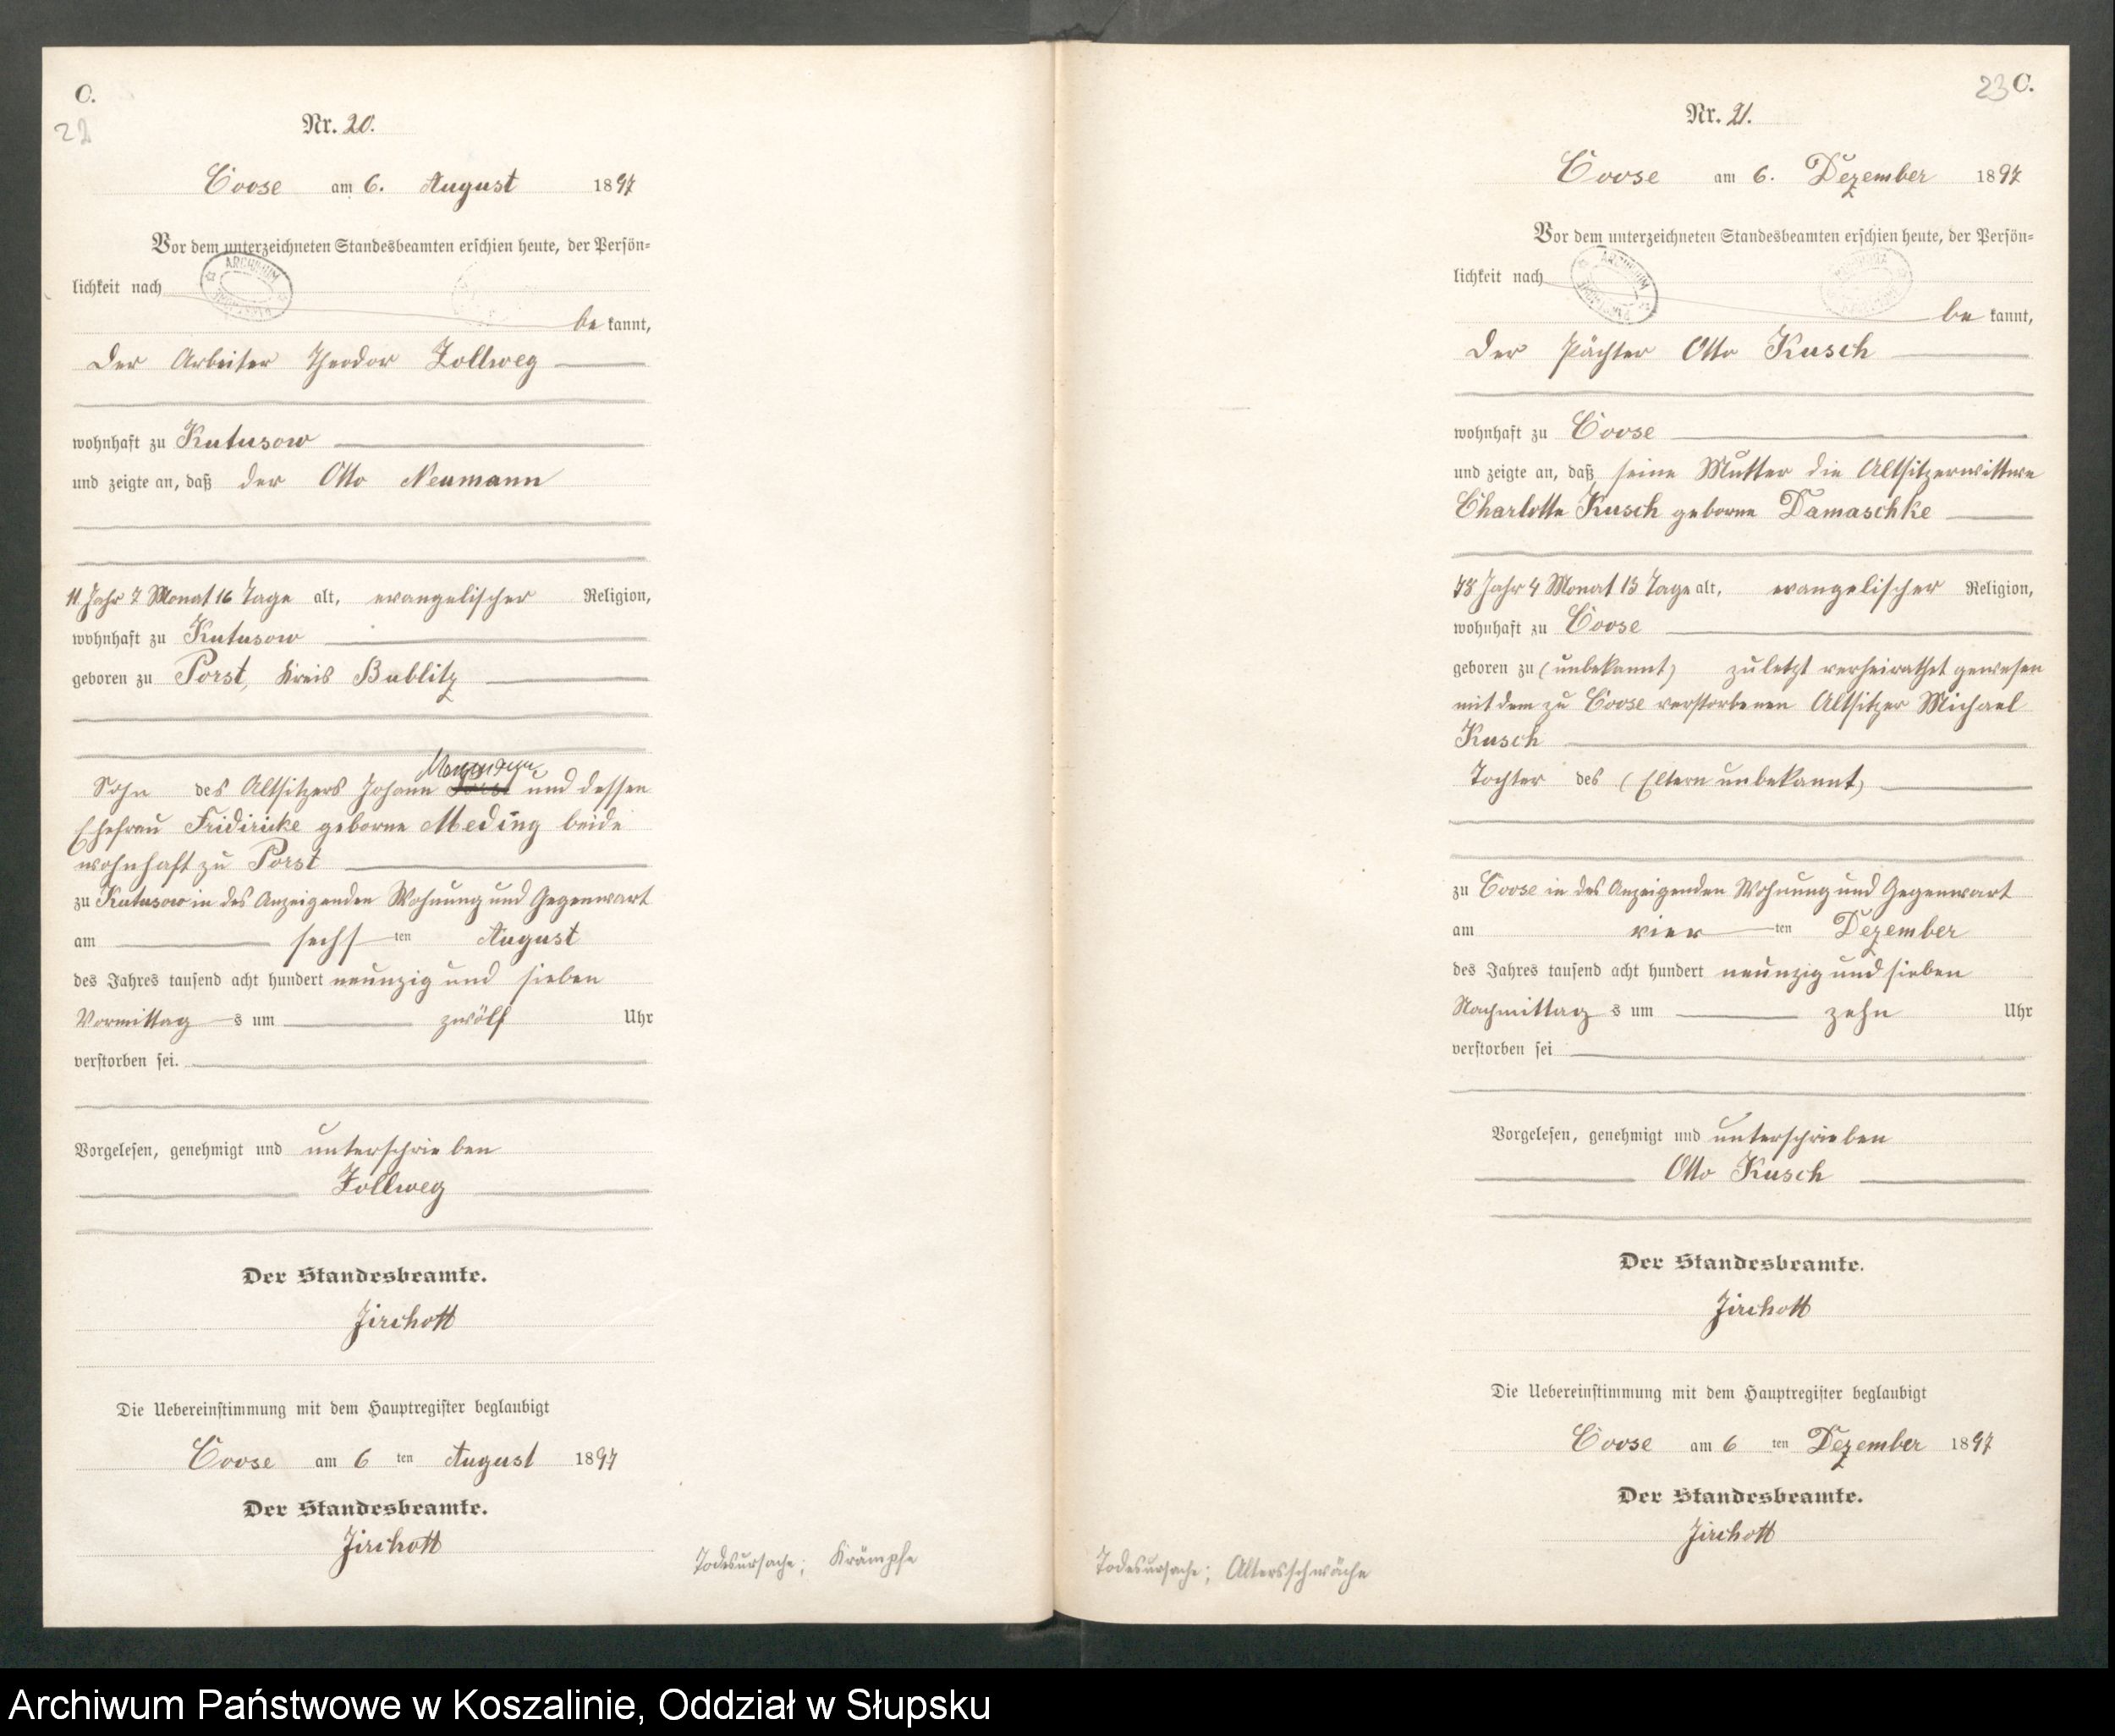 C.
22
Nr. 20.
Coose am 6. August 1897
Vor dem unterzeichneten Standesbeamten erschien heute, der Persön-
lichkeit nach
ARCHIWUM
be kannt,
der Arbeiter Theodor Zollweg
wohnhaft zu Kutusow
und zeigte an, daß der Otto Neumann
11 Jahr 7 Monat 16 Tage alt, evangelischer Religion,
wohnhaft zu Kutusow
geboren zu Porst, Kreis Bublitz
Sohn des Altsitzers Johann und dessen
Ehefrau Fridiricke geborne Meding beide
wohnhaft zu Porst
zu Kutusow in des Anzeigenden Wohnung und Gegenwart
am sechs ten August
des Jahres tausend acht hundert neunzig und sieben
Vormittag s um zwölf Uhr
verstorben sei.
Vorgelesen, genehmigt und unterschrieben
Zollweg
Der Standesbeamte.
Jirchott
Die Uebereinstimmung mit dem Hauptregister beglaubigt
Coose am 6 ten August 1897
Der Standesbeamte.
Jirchott
Todesursache; Krämpfe
23 C.
Nr. 21.
Coose am 6. Dezember 1897
Vor dem unterzeichneten Standesbeamten erschien heute, der Persön-
lichkeit nach
ARCHIWUM
be kannt,
der Pächter Otto Kusch
wohnhaft zu Coose
und zeigte an, daß seine Mutter die Altsitzerwittwe
Charlotte Kusch geborne Damaschke
78 Jahr 4 Monat 13 Tage alt, evangelischer Religion,
wohnhaft zu Coose
geboren zu (unbekannt) zuletzt verheirathet gewesen
mit dem zu Coose verstorbenen Altsitzer Michael
Kusch
Tochter des (Eltern unbekannt)
zu Coose in des Anzeigenden Wohnung und Gegenwart
am vier ten Dezember
des Jahres tausend acht hundert neunzig und sieben
Nachmittag s um zehn Uhr
verstorben sei
Vorgelesen, genehmigt und unterschrieben
Otto Kusch
Der Standesbeamte.
Jirchott
Die Uebereinstimmung mit dem Hauptregister beglaubigt
Coose am 6 ten Dezember 1897
Der Standesbeamte.
Jirchott
Todesursache; Altersschwäche
Archiwum Państwowe w Koszalinie, Oddział w Słupsku